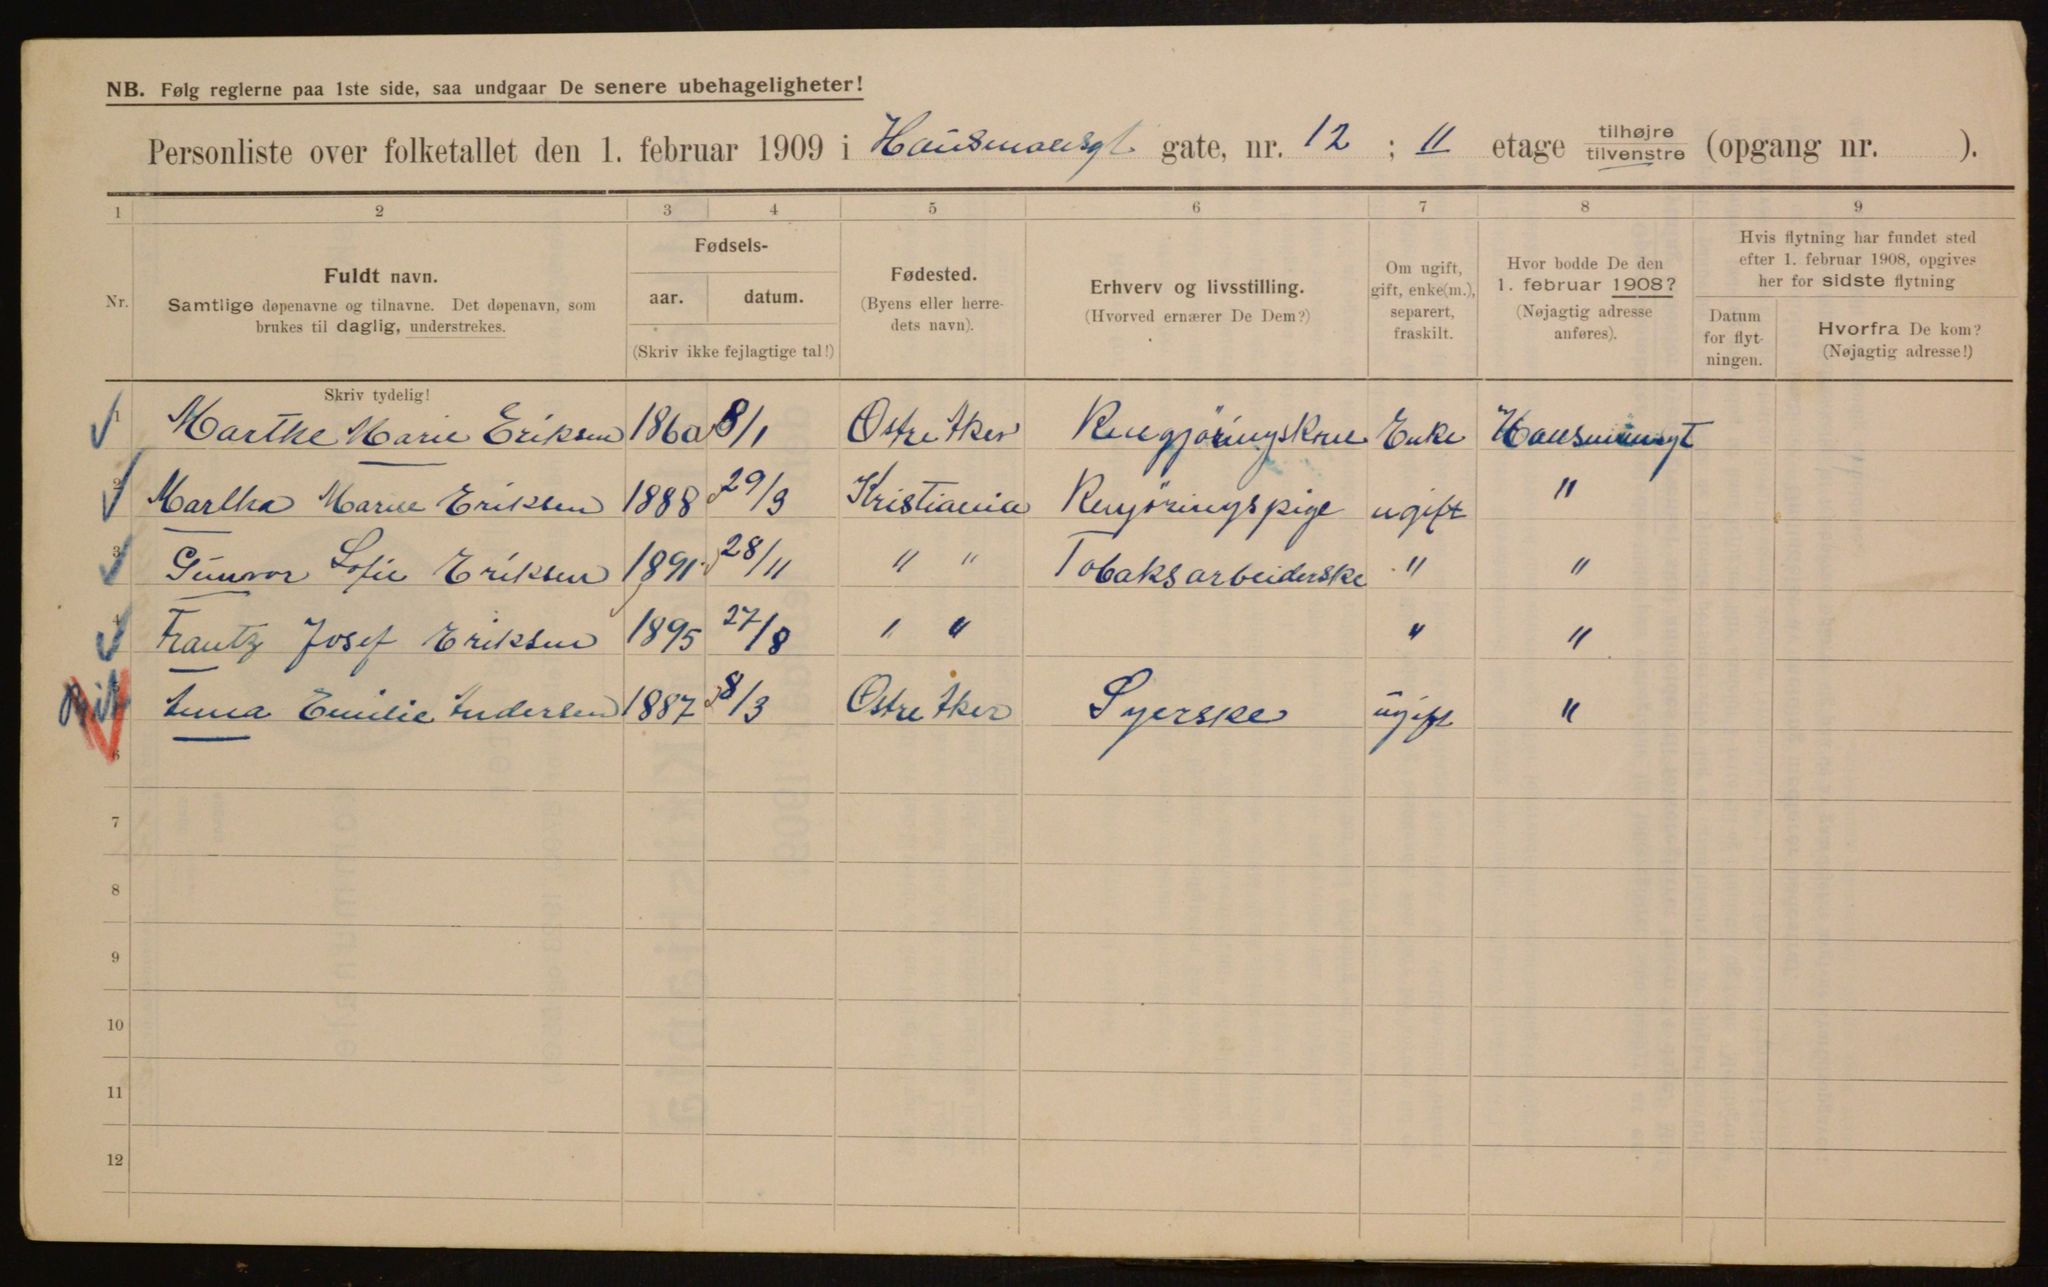 NB. Følg reglerne paa 1ste side, saa undgaar De senere ubehageligheter!
Personliste over folketallet den 1. februar 1909 i Hausmansgt. gate, nr. 12 ; II etage tilhøjre / tilvenstre (opgang nr. ).
1 2 3 4 5 6 7 8 9
Nr.
Fuldt navn.
Samtlige døpenavne og tilnavne. Det døpenavn, som
brukes til daglig, understrekes.
Fødsels-
aar. datum.
(Skriv ikke fejlagtige tal!)
Fødested.
(Byens eller herre-
dets navn).
Erhverv og livsstilling.
(Hvorved ernærer De Dem?)
Om ugift,
gift, enke(m.),
separert,
fraskilt.
Hvor bodde De den
1. februar 1908?
(Nøjagtig adresse
anføres).
Hvis flytning har fundet sted
efter 1. februar 1908, opgives
her for sidste flytning
Datum
for flyt-
ningen.
Hvorfra De kom?
(Nøjagtig adresse!)
Skriv tydelig!
1 Marthe Marie Eriksen 1860 8/1 Østre Aker Rengjöringskone Enke Hausmansgt
2 Martha Marie Eriksen 1888 29/9 Kristiania Rengjöringspige ugift "
3 Gunvor Sofie Eriksen 1891 28/11 " " Tobaksarbeiderske " "
4 Frantz Josef Eriksen 1895 27/8 " " " "
Anna Emilie Andersen 1887 8/3 Østre Aker Syerske ugift "
6
7
8
9
10
11
12